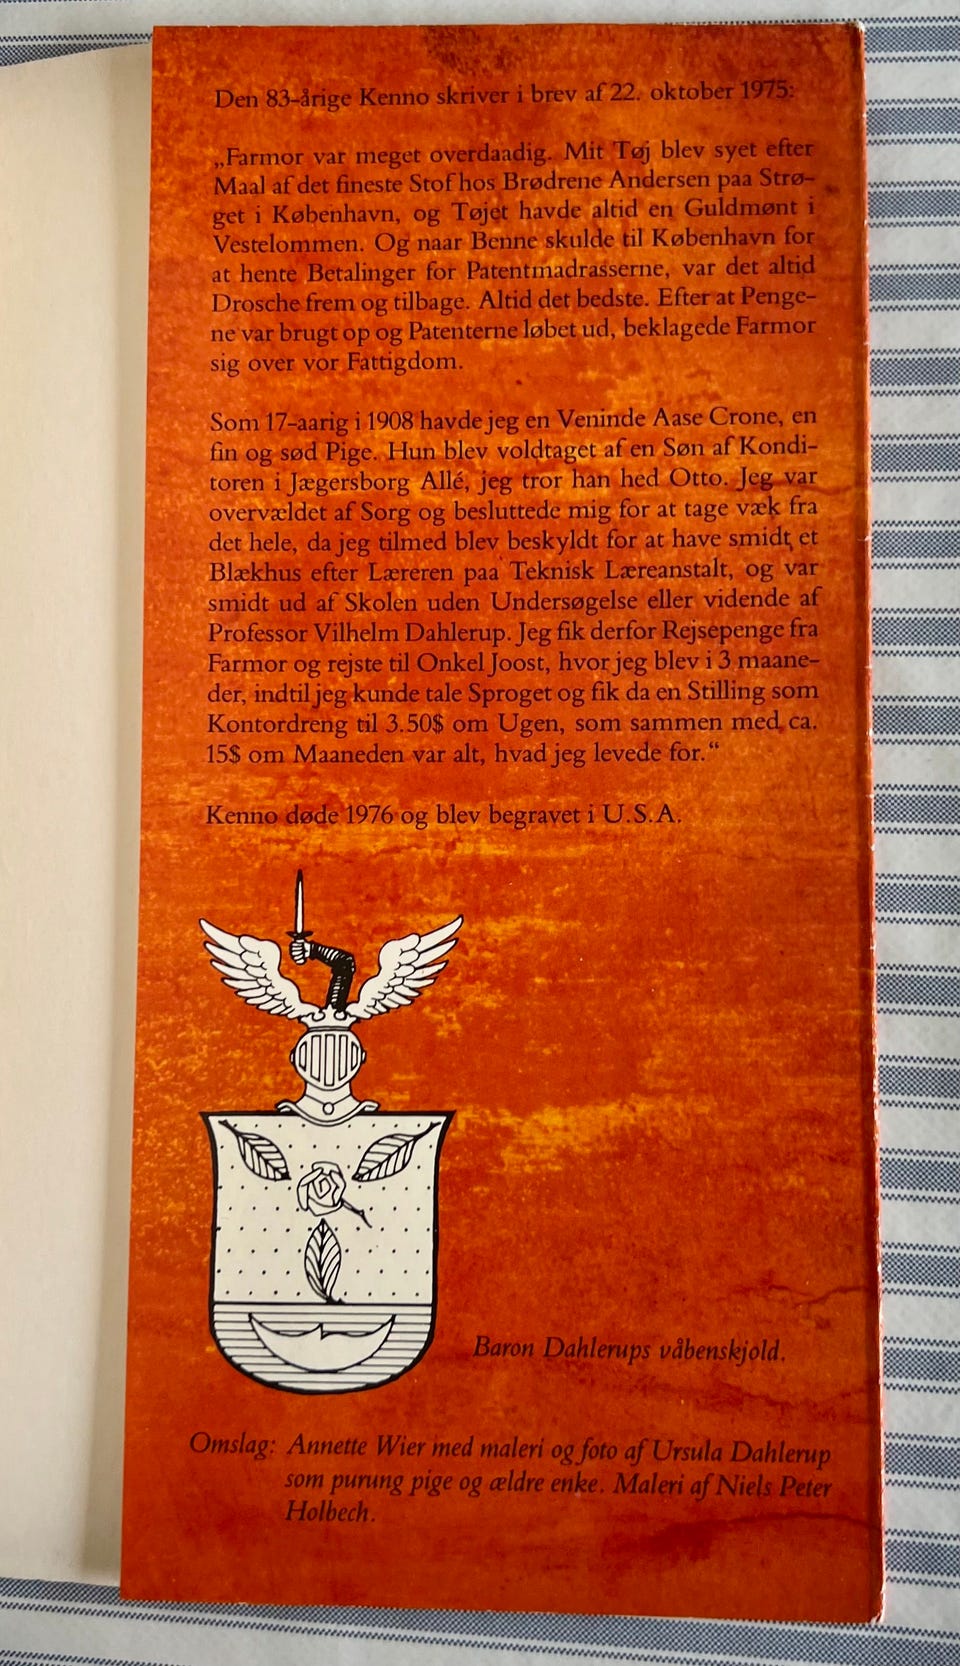 Den 83-årige Kenno skriver i brev af 22. oktober 1975:
„Farmor var meget overdaadig. Mit Tøj blev syet efter
Maal af det fineste Stof hos Brødrene Andersen paa Strø-
get i København, og Tøjet havde altid en Guldmønt i
Vestelommen. Og naar Benne skulde til København for
at hente Betalinger for Patentmadrasserne, var det altid
Drosche frem og tilbage. Altid det bedste. Efter at Penge-
ne var brugt op og Patenterne løbet ud, beklagede Farmor
sig over vor Fattigdom.
Som 17-aarig i 1908 havde jeg en Veninde Aase Crone, en
fin og sød Pige. Hun blev voldtaget af en Søn af Kondi-
toren i Jægersborg Allé, jeg tror han hed Otto. Jeg var
overvældet af Sorg og besluttede mig for at tage væk fra
det hele, da jeg tilmed blev beskyldt for at have smidt et
Blækhus efter Læreren paa Teknisk Læreanstalt, og var
smidt ud af Skolen uden Undersøgelse eller vidende af
Professor Vilhelm Dahlerup. Jeg fik derfor Rejsepenge fra
Farmor og rejste til Onkel Joost, hvor jeg blev i 3 maane-
der, indtil jeg kunde tale Sproget og fik da en Stilling som
Kontordreng til 3.50$ om Ugen, som sammen med ca.
15$ om Maaneden var alt, hvad jeg levede for.“
Kenno døde 1976 og blev begravet i U.S.A.
Baron Dahlerups våbenskjold.
Omslag: Annette Wier med maleri og foto af Ursula Dahlerup
som purung pige og ældre enke. Maleri af Niels Peter
Holbech.